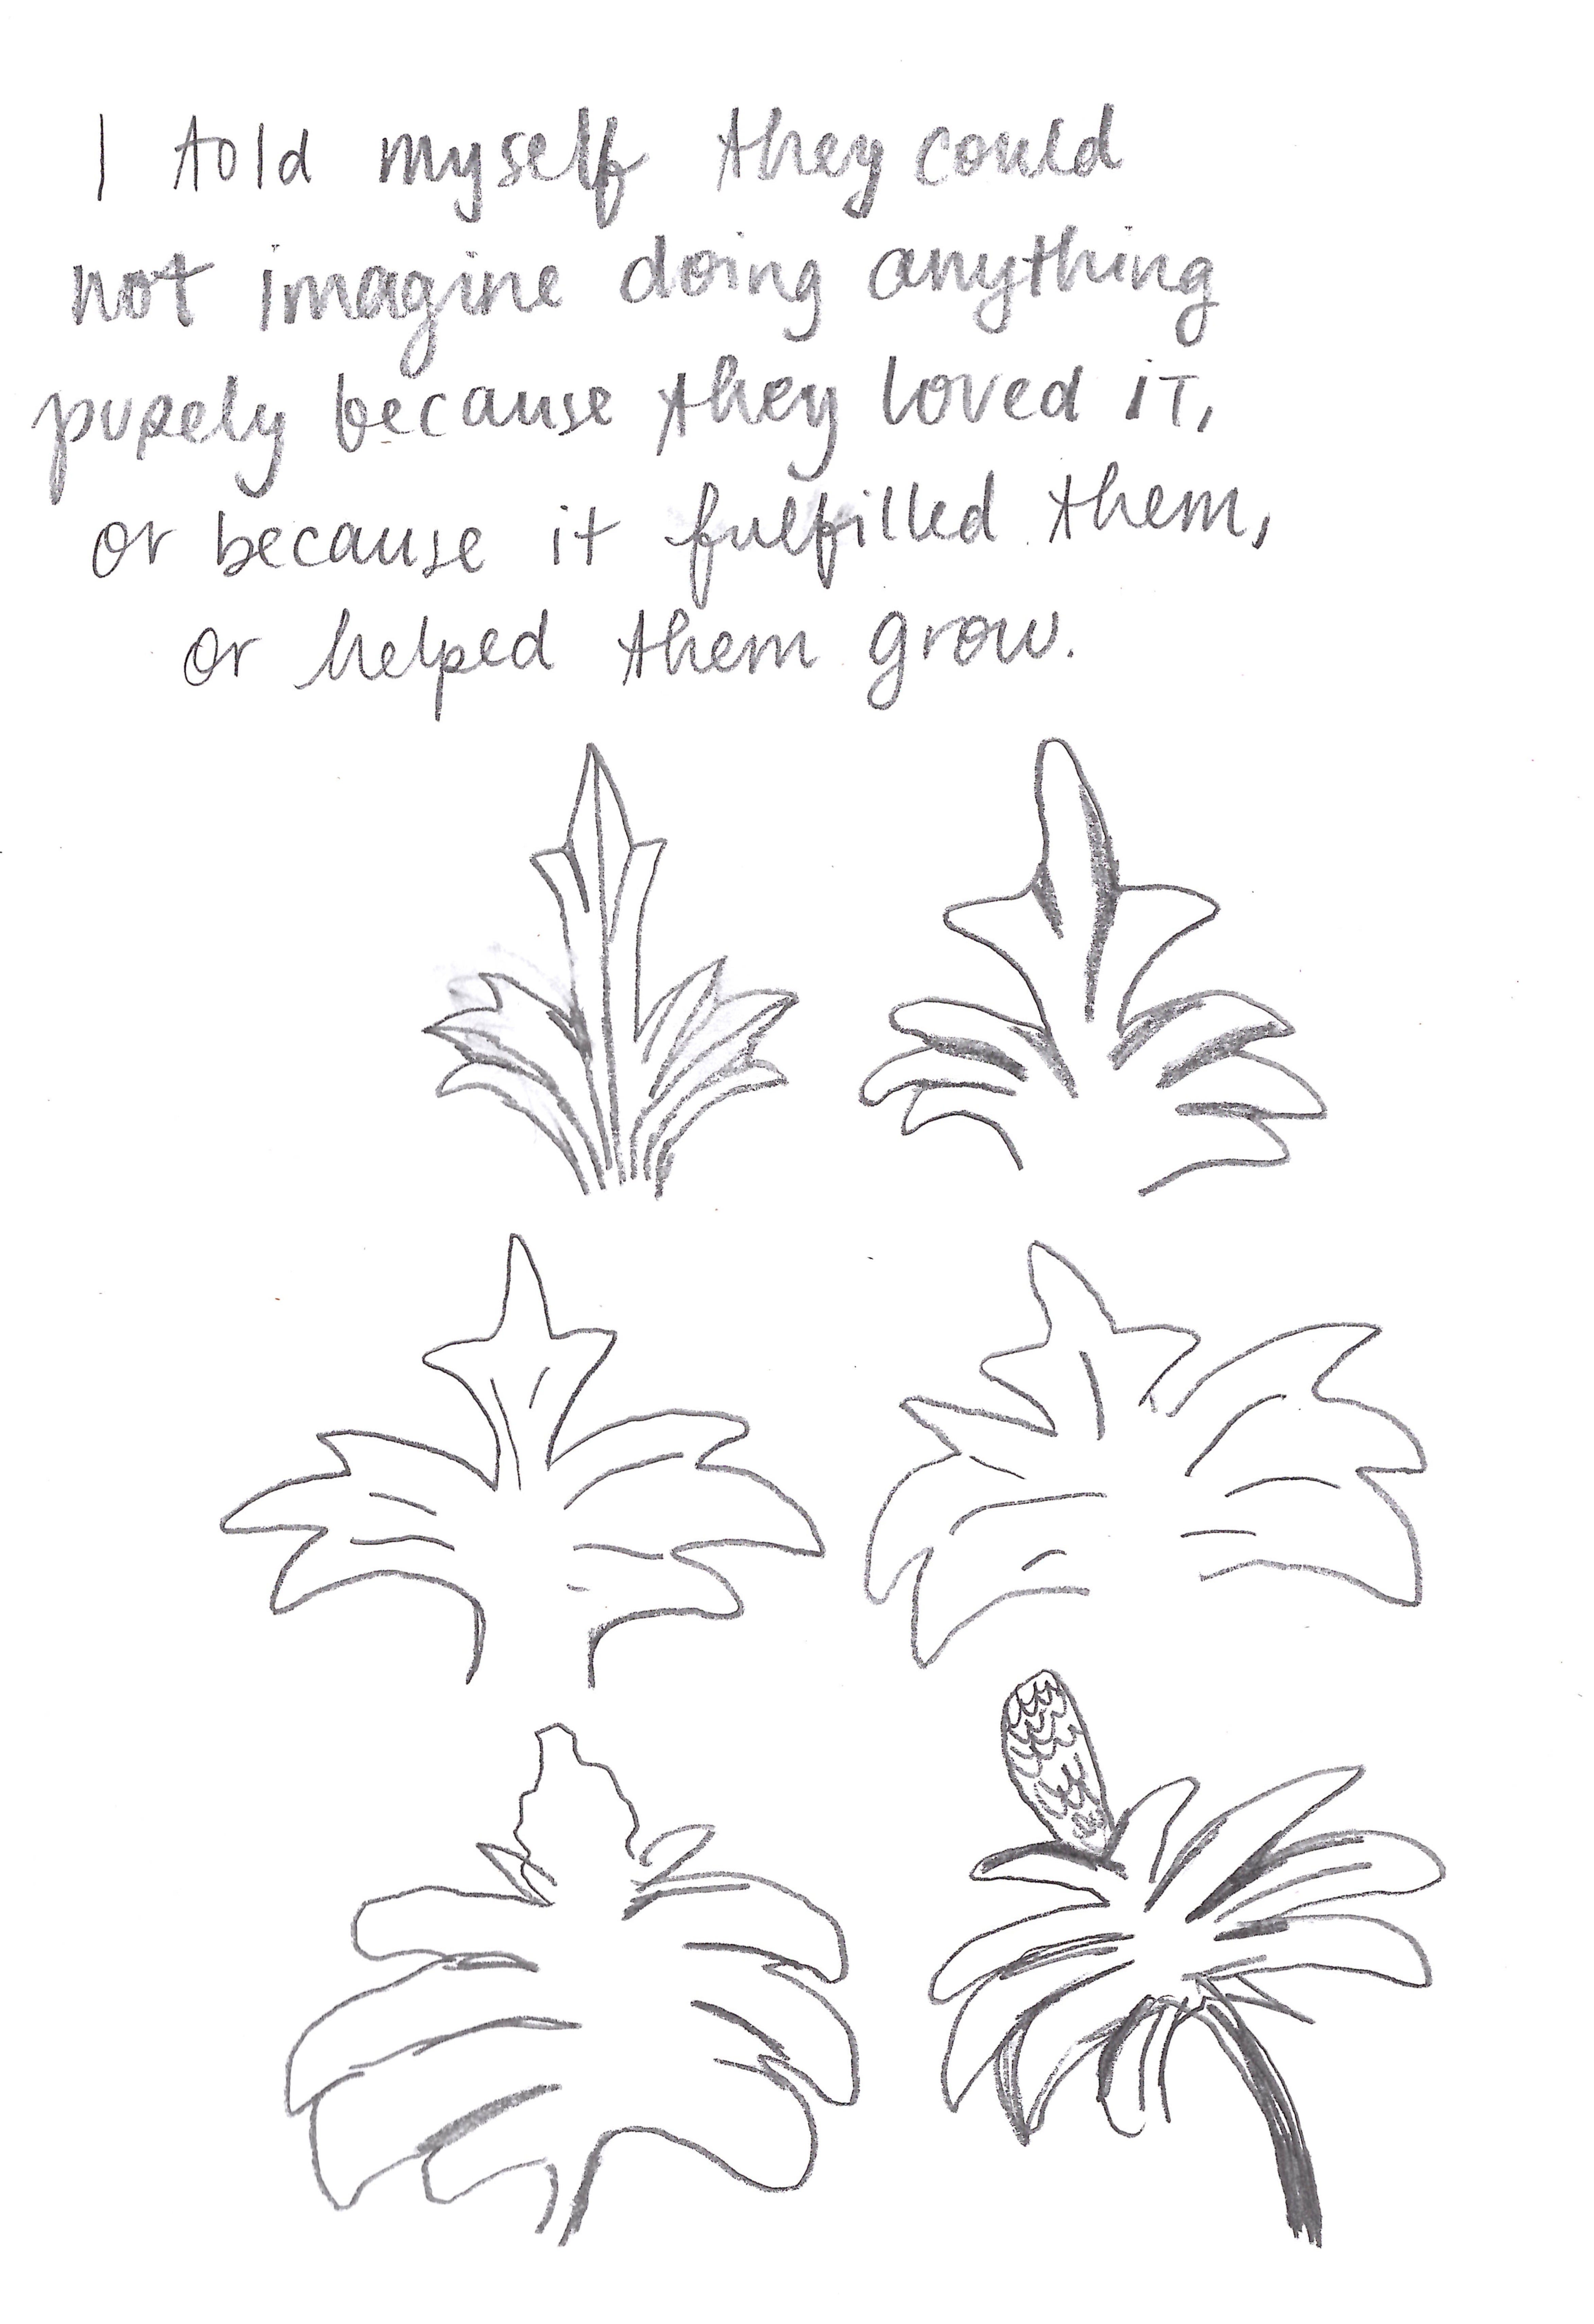 I told myself they could
not imagine doing anything
purely because they loved it,
or because it fulfilled them,
or helped them grow.